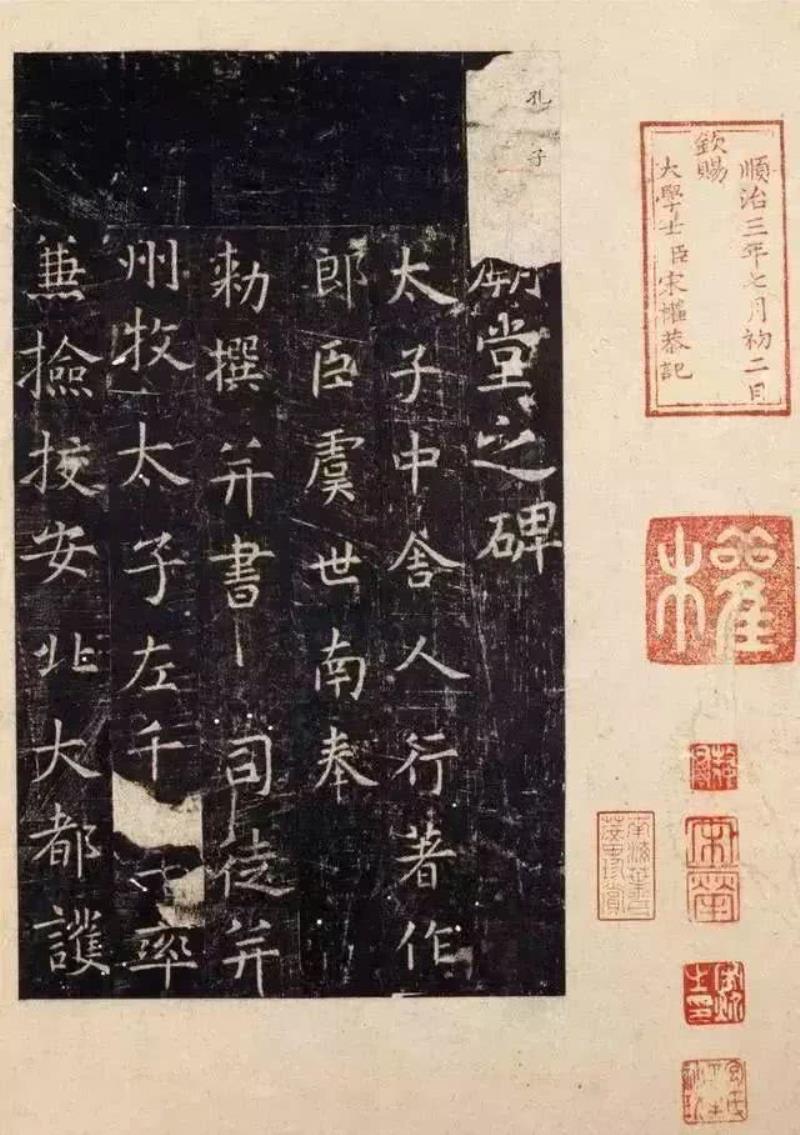 順治三年七月初二日
欽賜
大學士臣宋權恭記
權
宋犖
孔子
廟堂之碑
太子中舍人行著作
郎臣虞世南奉
勑撰并書 司徒并
州牧太子左千士率
兼撿挍安北大都護